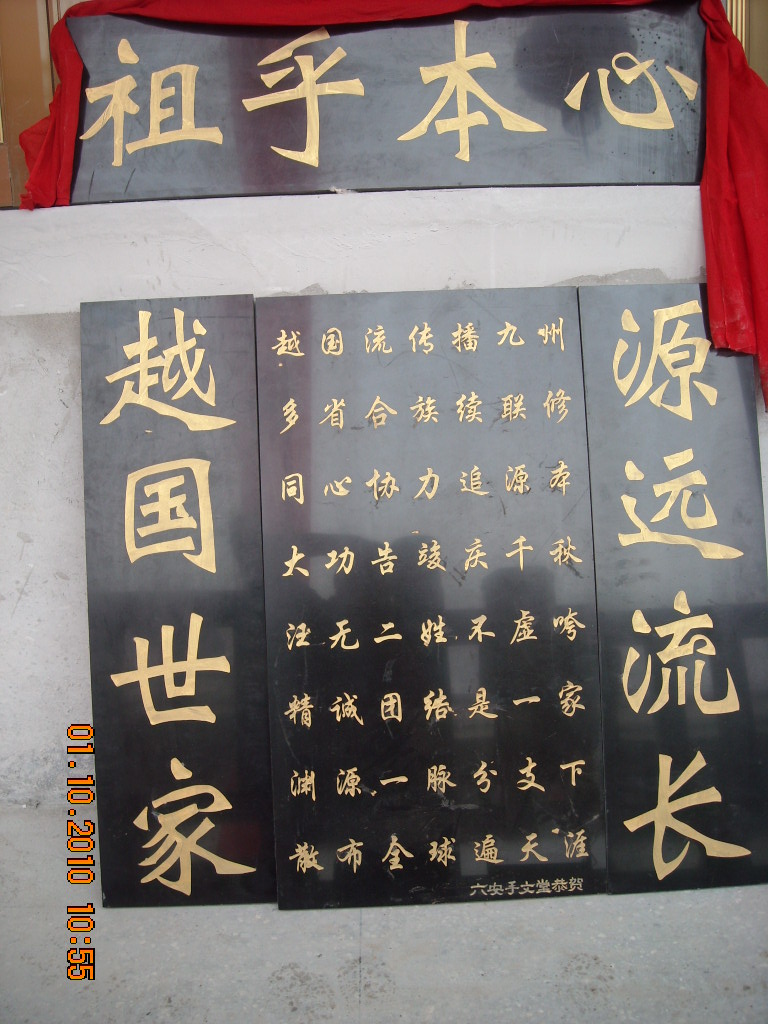 祖乎本心
越国世家
越国流传播九州
多省合族续联修
同心协力追源本
大功告竣庆千秋
汪无二姓不虚夸
精诚团结是一家
渊源一脉分支下
散布全球遍天涯
六安手文堂恭贺
源远流长
01.10.2010 10:55